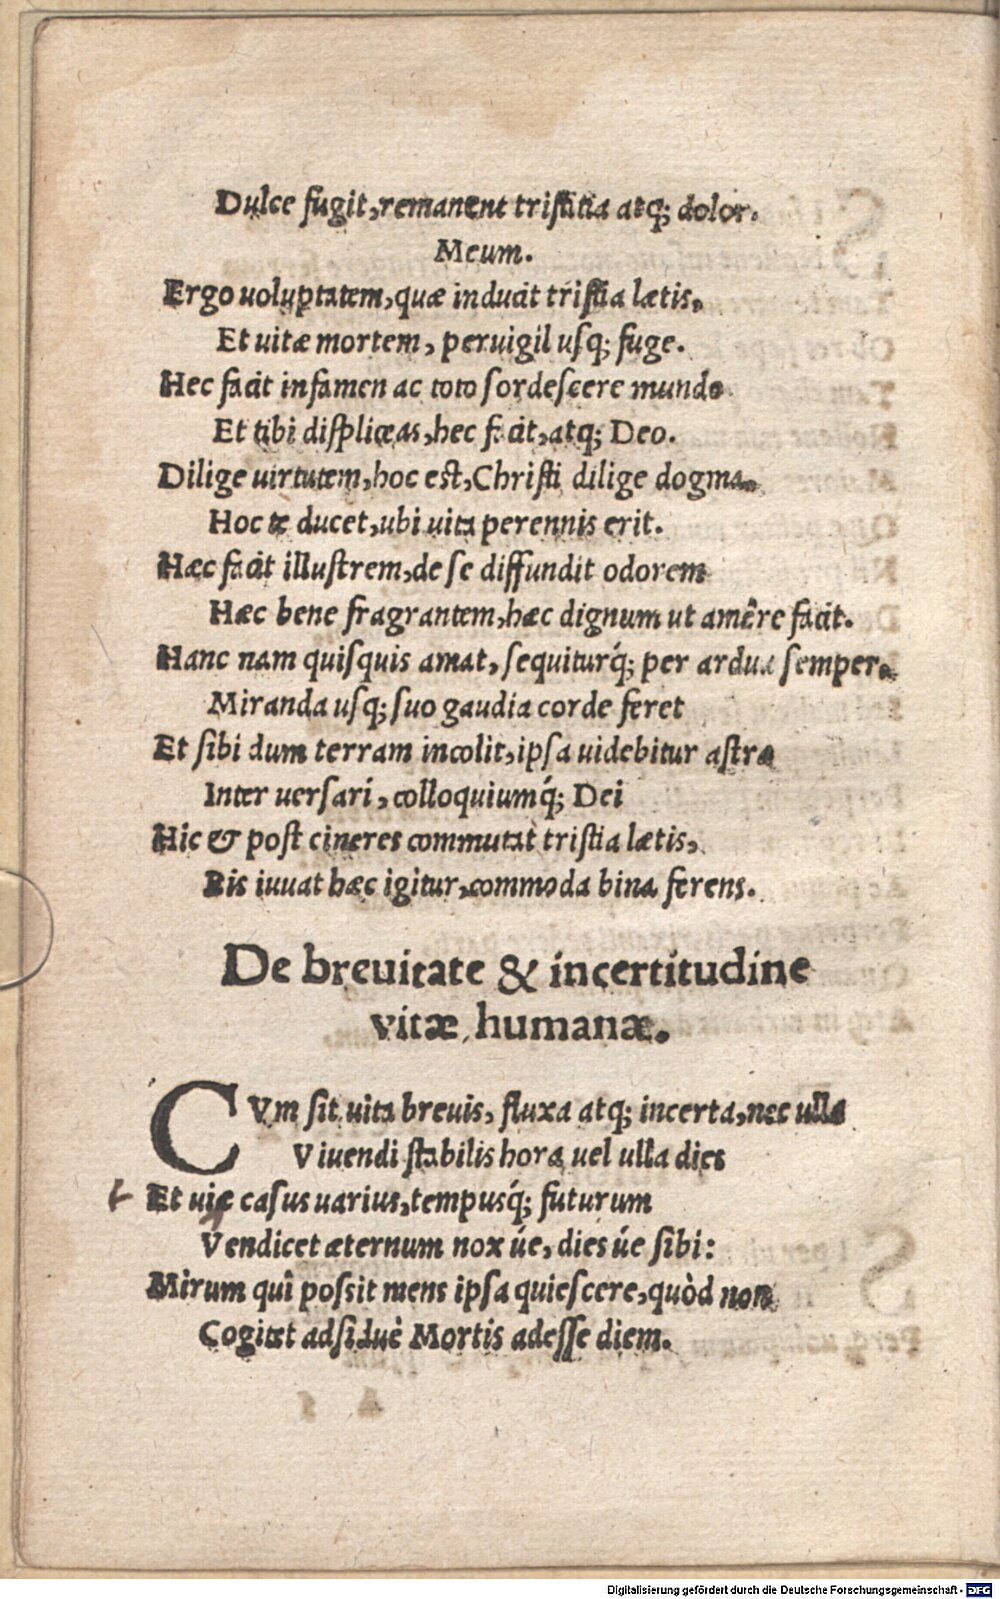 Dulce fugit, remanent tristitia atq; dolor.
Meum.
Ergo uoluptatem, quæ inducit tristia lætis,
Et uitæ mortem, peruigil usq; fuge.
Hec facit infamen ac toto sordescere mundo
Et tibi displiceas, hec facit, atq; Deo.
Dilige uirtutem, hoc est, Christi dilige dogma.
Hoc te ducet, ubi uita perennis erit.
Hæc facit illustrem, de se diffundit odorem
Hæc bene fragrantem, hæc dignum ut amêre facit.
Hanc nam quisquis amat, sequiturq́; per ardua semper.
Miranda usq; suo gaudia corde feret
Et sibi dum terram incolit, ipsa uidebitur astra
Inter uersari, colloquiumq́; Dei
Hic & post cineres commutat tristia lætis,
Bis iuuat hæc igitur, commoda bina ferens.
De breuitate & incertitudine
vitæ humanæ.
CVm sit uita breuis, fluxa atq; incerta, nec ulla
Viuendi stabilis hora uel ulla dies
Et uiæ casus uarius, tempusq́; futurum
Vendicet æternum nox úe, dies úe sibi:
Mirum quî possit mens ipsa quiescere, quòd non
Cogitet adsiduè Mortis adesse diem.
Digitalisierung gefördert durch die Deutsche Forschungsgemeinschaft - DFG